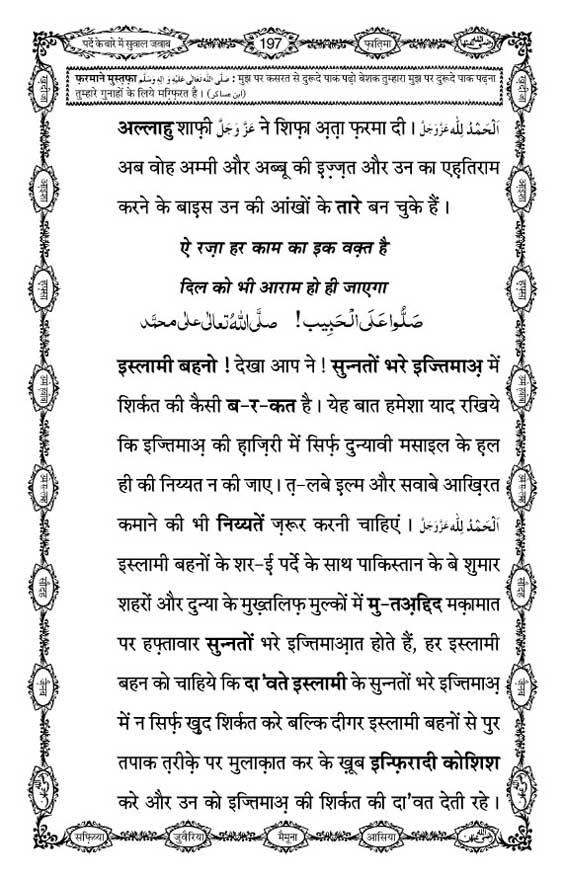 पर्दे के बारे में सुवाल जवाब
197
फ़रमाने मुस्तफ़ा صلی اللہ تعالٰی علیہ و اٰلہٖ وسلّم : मुझ पर कसरत से दुरूदे पाक पढ़ो बेशक तुम्हारा मुझ पर दुरूदे पाक पढ़ना
तुम्हारे गुनाहों के लिये मग़्फ़िरत है। (ابن عساکر)
अल्लाहु शाफ़ी عَزَّوَجَلَّ ने शिफ़ा अ़ता फ़रमा दी। اَلْحَمْدُ لِلّٰه عَزَّوَجَلَّ
अब वोह अम्मी और अब्बू की इ़ज़्ज़त और उन का एह़तिराम
करने के बाइस उन की आंखों के तारे बन चुके हैं।
ऐ रज़ा हर काम का इक वक़्त है
दिल को भी आराम हो ही जाएगा
صَلُّوا عَلَى الْحَبِيب! صلَّى اللهُ تعالٰى على محمَّد
इस्लामी बहनो ! देखा आप ने ! सुन्नतों भरे इज्तिमाअ़ में
शिर्कत की कैसी ब-र-कत है। येह बात हमेशा याद रखिये
कि इज्तिमाअ़ की ह़ाज़िरी में सिर्फ़ दुन्यावी मसाइल के ह़ल
ही की निय्यत न की जाए। त़-लबे इ़ल्म और सवाबे आख़िरत
कमाने की भी निय्यतें ज़रूर करनी चाहिएं। اَلْحَمْدُ لِلّٰه عَزَّوَجَلَّ
इस्लामी बहनों के शर-ई़ पर्दे के साथ पाकिस्तान के बे शुमार
शहरों और दुन्या के मुख़्तलिफ़ मुल्कों में मु-तअ़द्दिद मक़ामात
पर हफ़्तावार सुन्नतों भरे इज्तिमाआ़त होते हैं, हर इस्लामी
बहन को चाहिये कि दा'वते इस्लामी के सुन्नतों भरे इज्तिमाअ़
में न सिर्फ़ ख़ुद शिर्कत करे बल्कि दीगर इस्लामी बहनों से पुर
तपाक त़रीक़े पर मुलाक़ात कर के ख़ूब इन्फ़िरादी कोशिश
करे और उन को इज्तिमाअ़ की शिर्कत की दा'वत देती रहे।
सफ़िय्या
जुवैरिया
मैमूना
आसिया